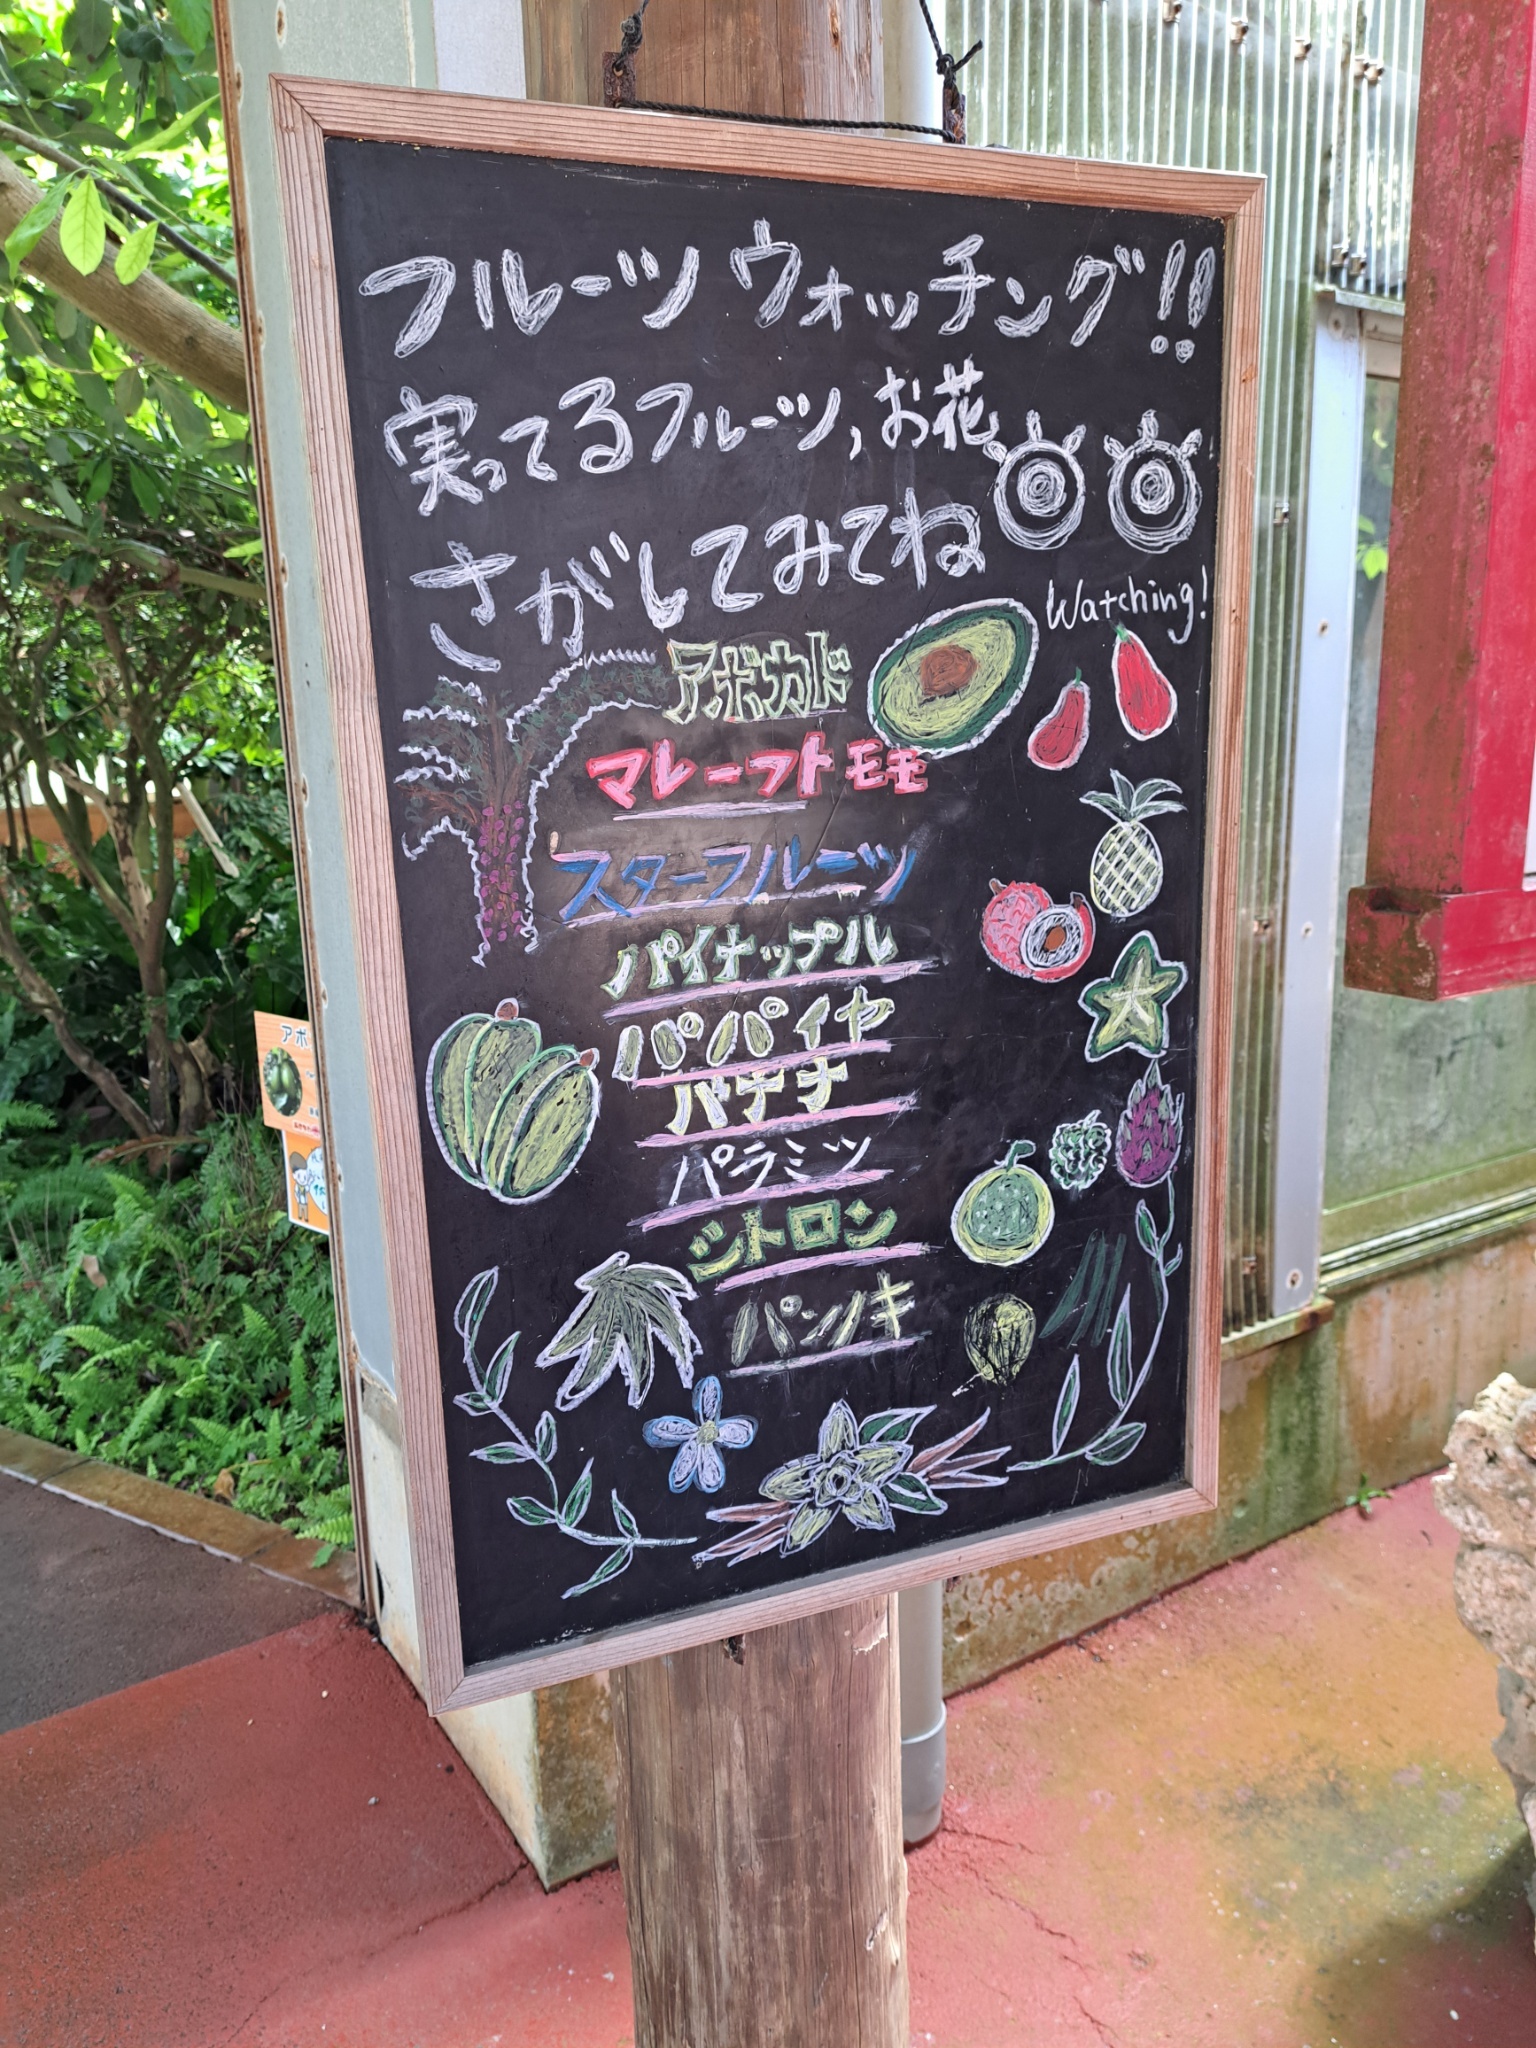 フルーツウォッチング!!
実ってるフルーツ,お花
さがしてみてね
Watching!
アボカド
マレーフトモモ
スターフルーツ
パイナップル
パパイヤ
バナナ
パラミツ
シトロン
パンノキ
アボ